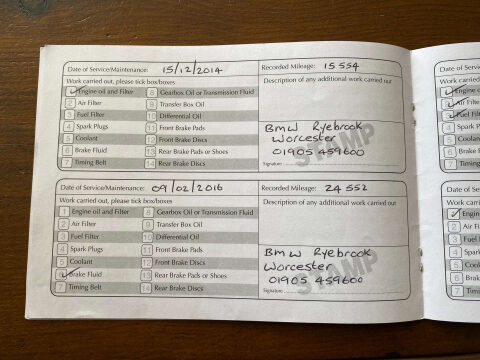 Date of Service/Maintenance: 15/12/2014 Recorded Mileage: 15 554
Work carried out, please tick box/boxes Description of any additional work carried out
1 Engine oil and Filter 8 Gearbox Oil or Transmission Fluid
2 Air Filter 9 Transfer Box Oil
3 Fuel Filter 10 Differential Oil
4 Spark Plugs 11 Front Brake Pads
5 Coolant 12 Front Brake Discs
6 Brake Fluid 13 Rear Brake Pads or Shoes
7 Timing Belt 14 Rear Brake Discs
BMW Ryebrook
Worcester
01905 459600
STAMP
Signature
Date of Service/Maintenance: 09/02/2016 Recorded Mileage: 24 552
Work carried out, please tick box/boxes Description of any additional work carried out
1 Engine oil and Filter 8 Gearbox Oil or Transmission Fluid
2 Air Filter 9 Transfer Box Oil
3 Fuel Filter 10 Differential Oil
4 Spark Plugs 11 Front Brake Pads
5 Coolant 12 Front Brake Discs
Brake Fluid 13 Rear Brake Pads or Shoes
7 Timing Belt 14 Rear Brake Discs
BMW Ryebrook
Worcester
01905 459600
STAMP
Signature
Date of Serv
Work carried
Engine
Air Filt
Fuel Fi
4 Spark
5 Coola
6 Brake
7 Timin
Date of Serv
Work carrie
Engin
2 Air Fi
3 Fuel F
4 Spark
5 Coola
6 Brake
7 Timi